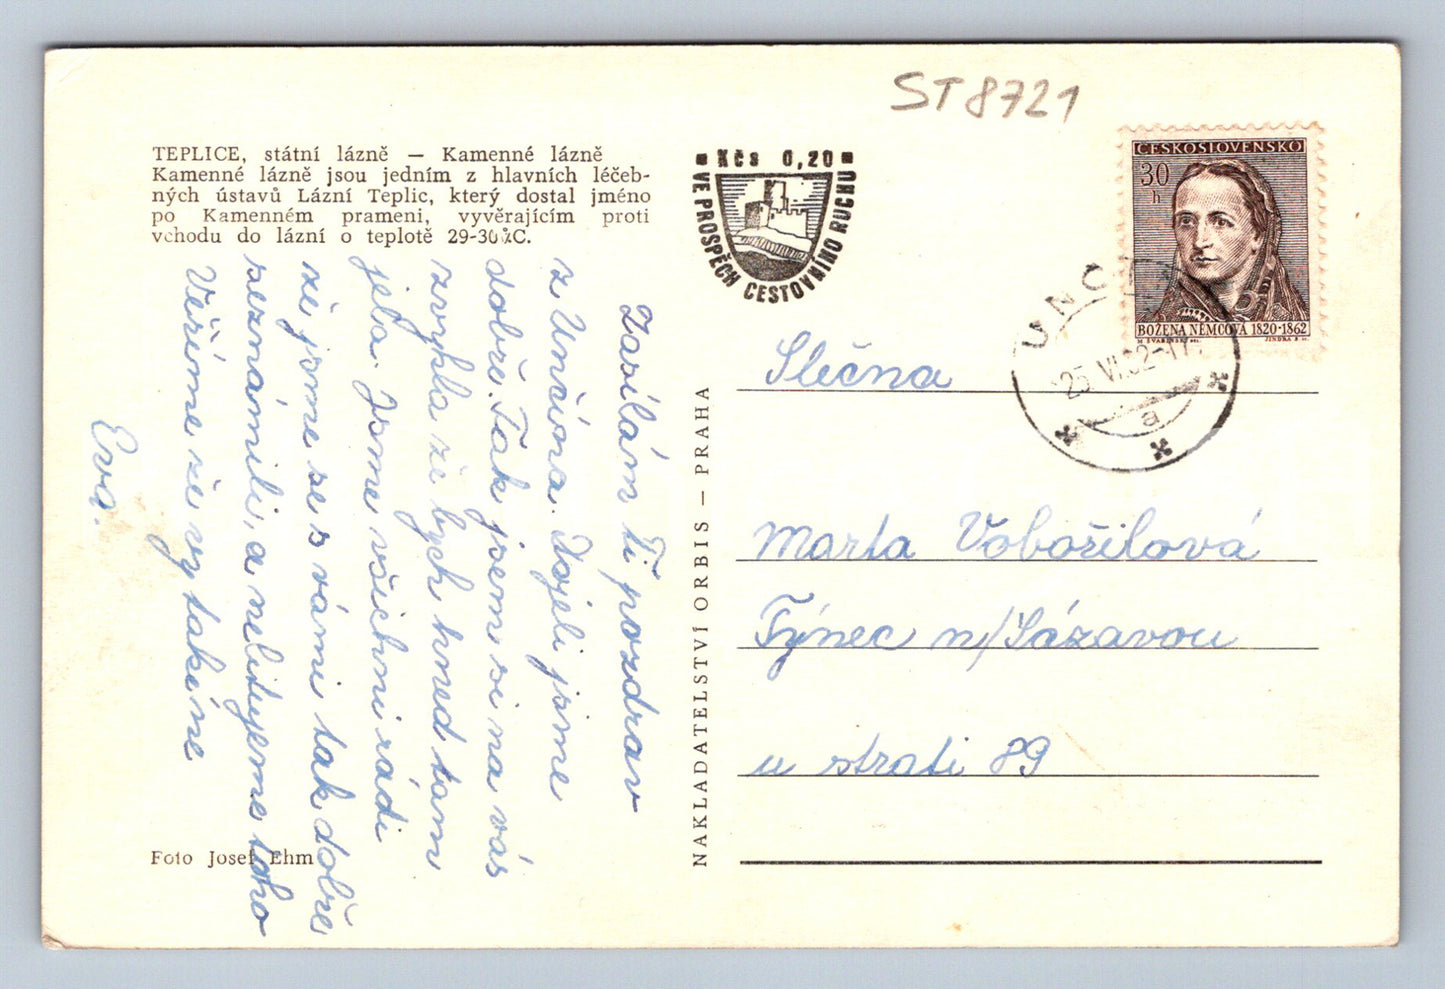 ST8721
TEPLICE, státní lázně — Kamenné lázně
Kamenné lázně jsou jedním z hlavních léčeb-
ných ústavů Lázní Teplic, který dostal jméno
po Kamenném prameni, vyvěrajícím proti
vchodu do lázní o teplotě 29-30 C.
Kčs 0,20
VE PROSPĚCH CESTOVNÍHO RUCHU
ČESKOSLOVENSKO
30
h
BOŽENA NĚMCOVÁ 1820-1862
25. VI. 62-17
a
Zasílám Ti pozdrav
z Unčína. Dojeli jsme
dobře. Tak jsem si na vás
zvykla že bych hned tam
jela. Jsme všichni rádi
že jsme se s vámi tak dobře
seznámili, a nelitujeme toho
Věříme že vy také ne
Eva.
Slečna
Marta Vobořilová
Týnec n/Sázavou
u strati 89
NAKLADATELSTVÍ ORBIS — PRAHA
Foto Josef Ehm